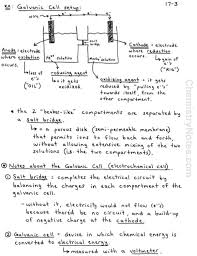 Galvanic Cell setup:
17-3
Anode: electrode
where oxidation
occurs.
Cathode: electrode
where reduction
occurs.
loss of
e⁻'s
("OIL")
gain of
e⁻'s
("RIG")
reducing agent
oxidizing agent = it gets
reduced by "pulling e⁻'s
towards itself", from
the other
compartment.
the 2 "beaker-like" compartments are separated
by a salt bridge.
→ a porous disk (semi-permeable membrane)
that permits ions to flow back and forth,
without allowing extensive mixing of the two
solutions (to the other compartments).
Notes about the Galvanic Cell (electrochemical cell)
① Salt bridge = completes the electrical circuit by
balancing the charges in each compartment of the
galvanic cell.
- without it, electricity would not flow (e⁻'s)
because there'd be no circuit, and a build-up
of negative charge at the cathode.
② Galvanic cell = device in which chemical energy is
converted to electrical energy.
→ measured with a voltmeter.
ChemistryNotes.com